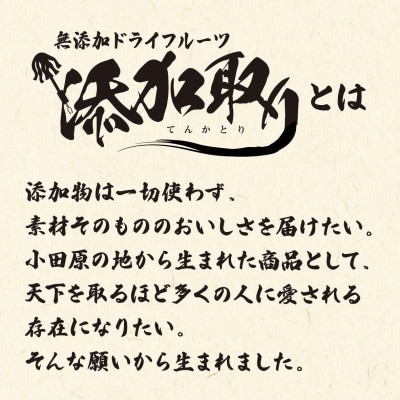 無添加ドライフルーツ
添加取りとは
てんかとり
添加物は一切使わず、
素材そのもののおいしさを届けたい。
小田原の地から生まれた商品として、
天下を取るほど多くの人に愛される
存在になりたい。
そんな願いから生まれました。